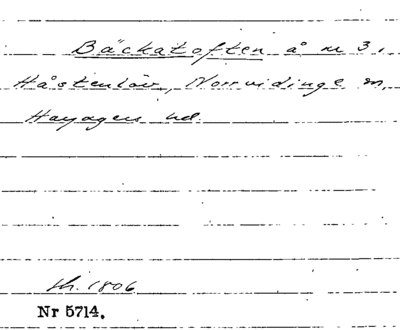 Bäckatoften å nr 3,
Håstenlöv, Norrvidinge sn,
Harjagers hd.
sk. 1806
Nr 5714.